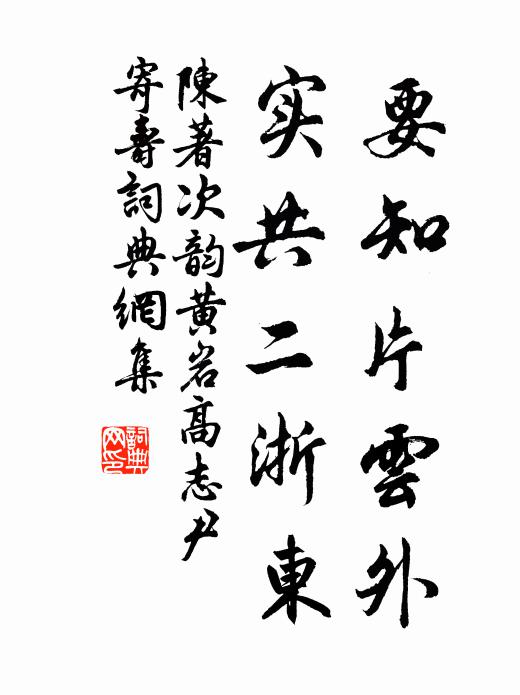 要知片雲外
实共二浙東
陳著次韵黄岩高志尹
寄壽詞典網集
詞典网印